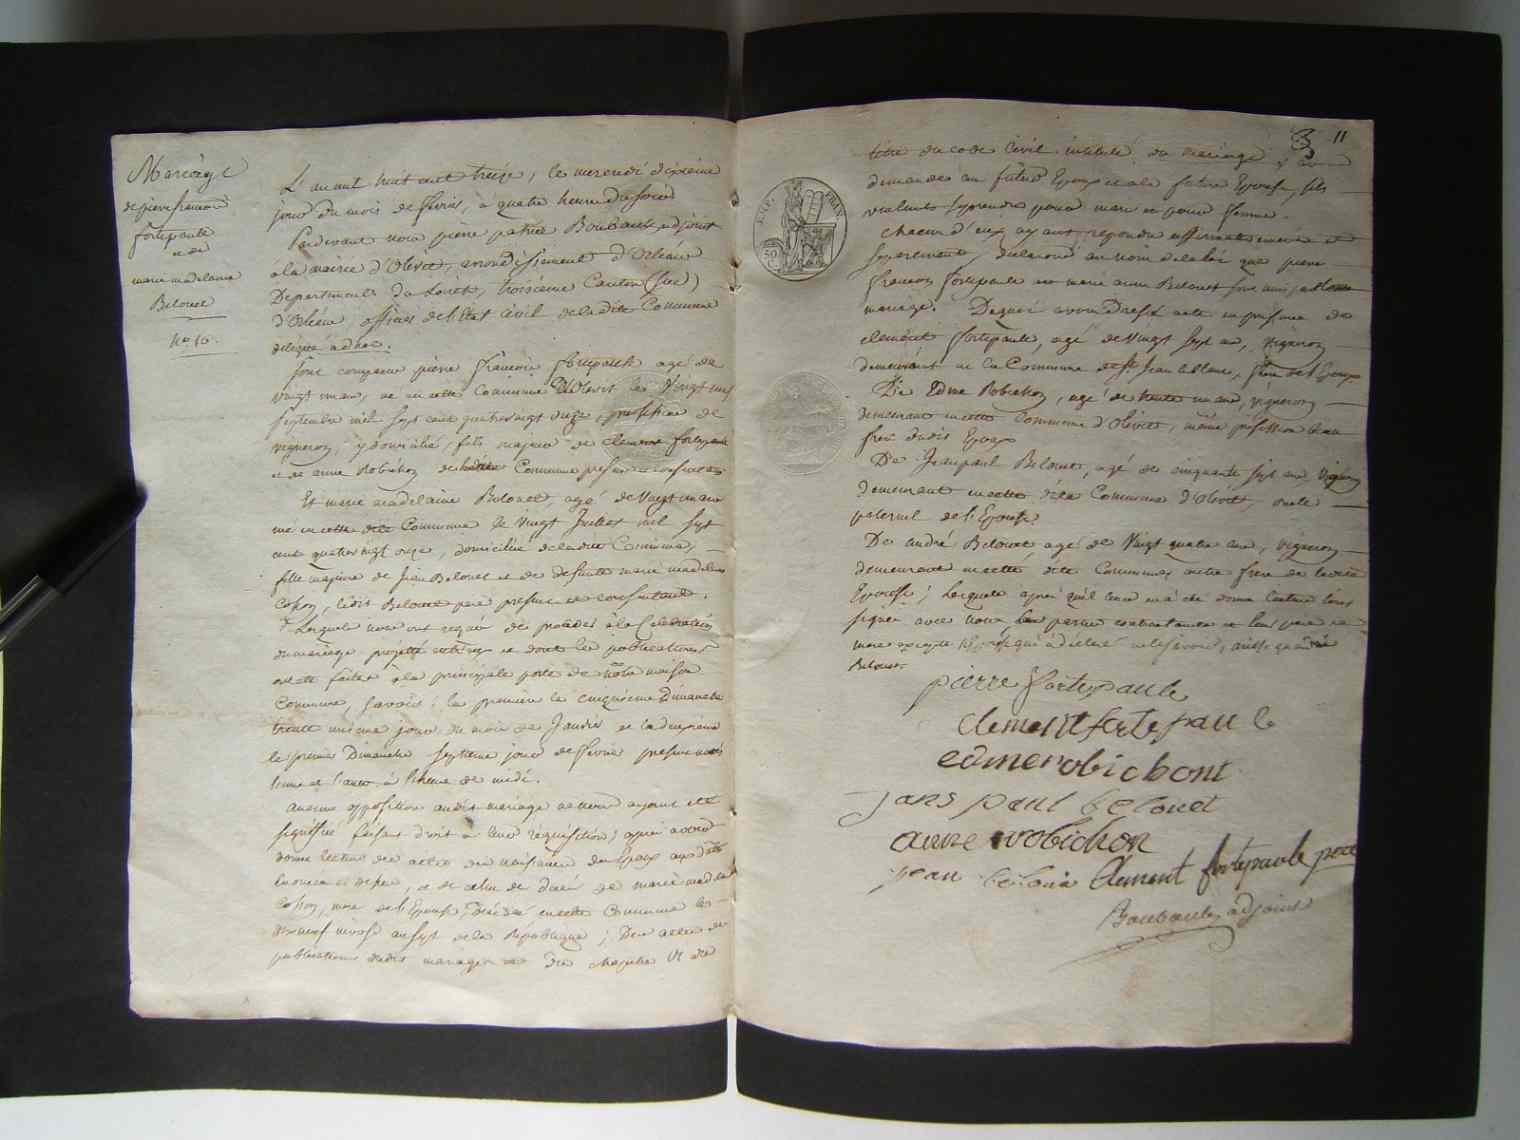 Mariage
de pierre francois
fortepaule
et de
marie madelaine
Belouet
no 10.
L'an mil huit cent treize, le mercredi dixieme
jour du mois de fevrier, à quatre heure du soir
Pardevant nous pierre patrice Boubault adjoint
à la mairie d'Olivet, arrondissement d'Orléans
Departement du Loiret, troisieme Canton (sud)
d'Orléans, officier de l'Etat Civil de la dite Commune
delegué adhoc.
sont comparus pierre francois fortepaule agé de
vingt un ans, né en cette Commune d'Olivet le vingt neuf
septembre mil sept cent quatrevingt onze, profession de
vigneron, y domicilié, fils majeur de clement fortepaule
et de anne Robichon de laditte Commune presens et consentans
Et marie madelaine Belouet, agé de vingt un ans
née en cette dite Commune le vingt Juillet mil sept
cent quatrevingt onze, domiciliée de la dite Commune,
fille majeure de Jean Belouet et de defunte marie madelaine
Cohon, ledit Belouet pere present et consentant.
Lesquels nous ont requis de proceder à la Celebration
du mariage projetté entre eux et dont les publications
ont été faites à la principale porte de notre maison
Commune, savoir: la premiere le cinquieme Dimanche
trente unieme jour du mois de Janvier et la deuxieme
le premier Dimanche septieme jour de fevrier present mois
l'une et l'autre à l'heure de midi.
aucune opposition audit mariage ne nous ayant été
signifiée faisant droit à leur requisition; après avoir
donné lecture des actes de naissance des Epoux
de celui de décès de marie madelaine
Cohon, mere de l'Epouse, décédée en cette Commune le
nivose an sept de la Republique; Des actes de
publications dudit mariage et du chapitre VI du
3 11
titre du code Civil intitulé du mariage,
demandé au futur Epoux et à la future Epouse, s'ils
veulent se prendre pour mari et pour femme.
chacun d'eux ayant repondu affirmativement et
separement, declarons au nom de la loi que pierre
francois fortepaule et marie Belouet sont unis par le
mariage. De quoi avons Dressé acte en presence de
clement fortepaule, agé de vingt sept ans, vigneron
demeurant en la Commune de St Jean le blanc, frere de l'Epoux
De Edme Robichon, agé de trente un ans, vigneron
demeurant en cette Commune d'Olivet, même profession
dudit Epoux
De Jean paul Belouet, agé de cinquante sept ans vigneron
demeurant en cette dite Commune d'Olivet, oncle
paternel de l'Epouse
De andré Belouet agé de vingt quatre ans, vigneron
demeurant en cette dite Commune, frere de la dite
Epouse; Lesquels après qu'il leur en a été donné lecture l'ont
signé avec nous les parties contractantes et leur pere et
mere excepté l'Epouse qui a declaré ne le savoir, ainsi qu'andré
Belouet.
pierre fortepaule
clement fortepaule
edme robichont
jans paul belouet
anne robichon
jean Clement fortepaule pere
Boubault adjoint